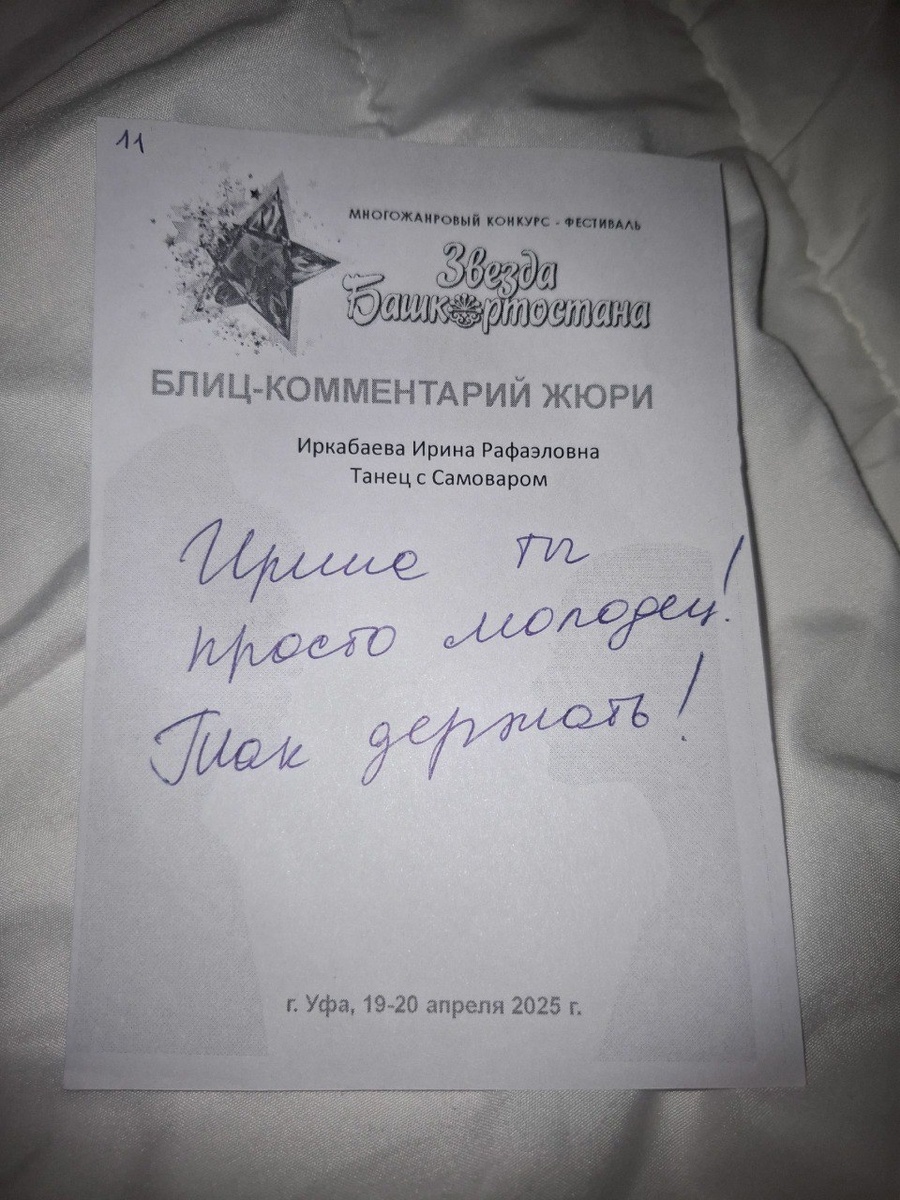 11
МНОГОЖАНРОВЫЙ КОНКУРС - ФЕСТИВАЛЬ
Звезда
Башкортостана
БЛИЦ-КОММЕНТАРИЙ ЖЮРИ
Иркабаева Ирина Рафаэловна
Танец с Самоваром
Ирише ты
просто молодец!
Так держать!
г. Уфа, 19-20 апреля 2025 г.